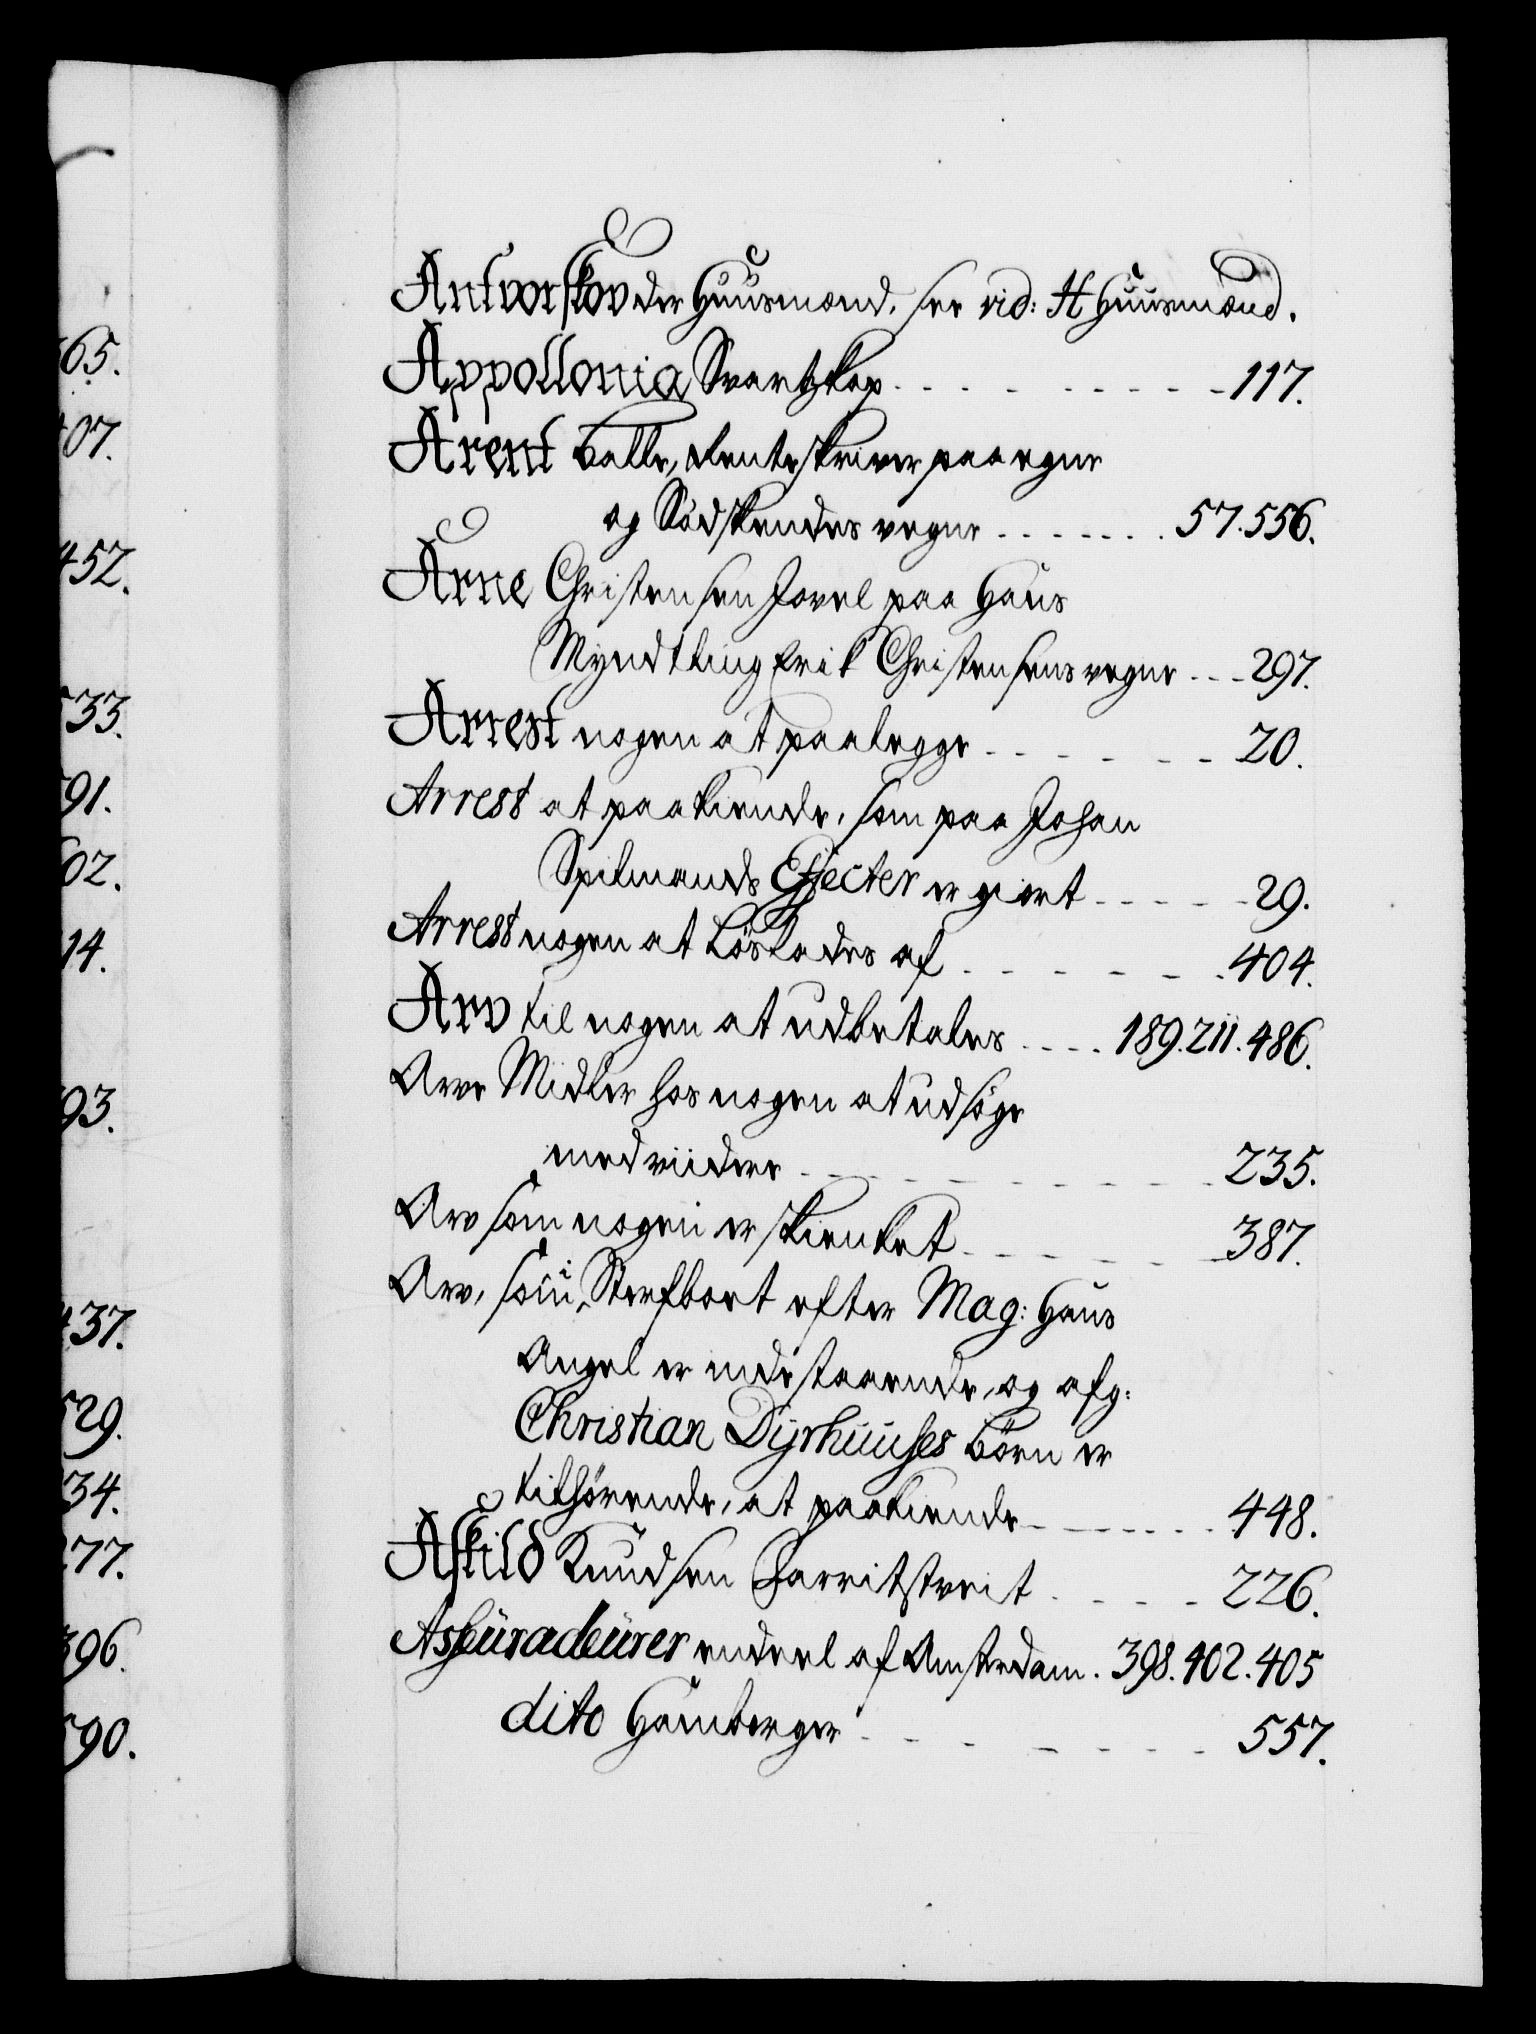 65.
07.
452.
33.
91.
02.
14.
93.
37.
29.
34.
77.
396.
590.
Antvorskov der Huusmænd, see vid: H Huusmænd.
Appollonia Svartzkop 117.
Arent Balle, Renteskriver paa egne
og Södskendes vegne 57. 556.
Arne Christensen Jovel paa Hans
Myndtling Erik Christensens vegne 297.
Arrest nogen at paalegge 20.
Arrest at paakiende, som paa Johan
Spilmands Effecter er giort 29.
Arrest nogen at Löslades af 404.
Arv til nogen at udbetales 189. 211. 486.
Arve Midler hos nogen at udsöge
med viidere 235.
Arv som nogen er skienket 387.
Arv, som i Sterfboet efter Mag: Hans
Angel er indestaaende, og afg:
Christian Dyrhuuses Börn er
tilhörende, at paakiende 448.
Askild Knudsen 226.
Asseuradeurer endeel af Amsterdam. 398. 402. 405
dito Hamborger 557.